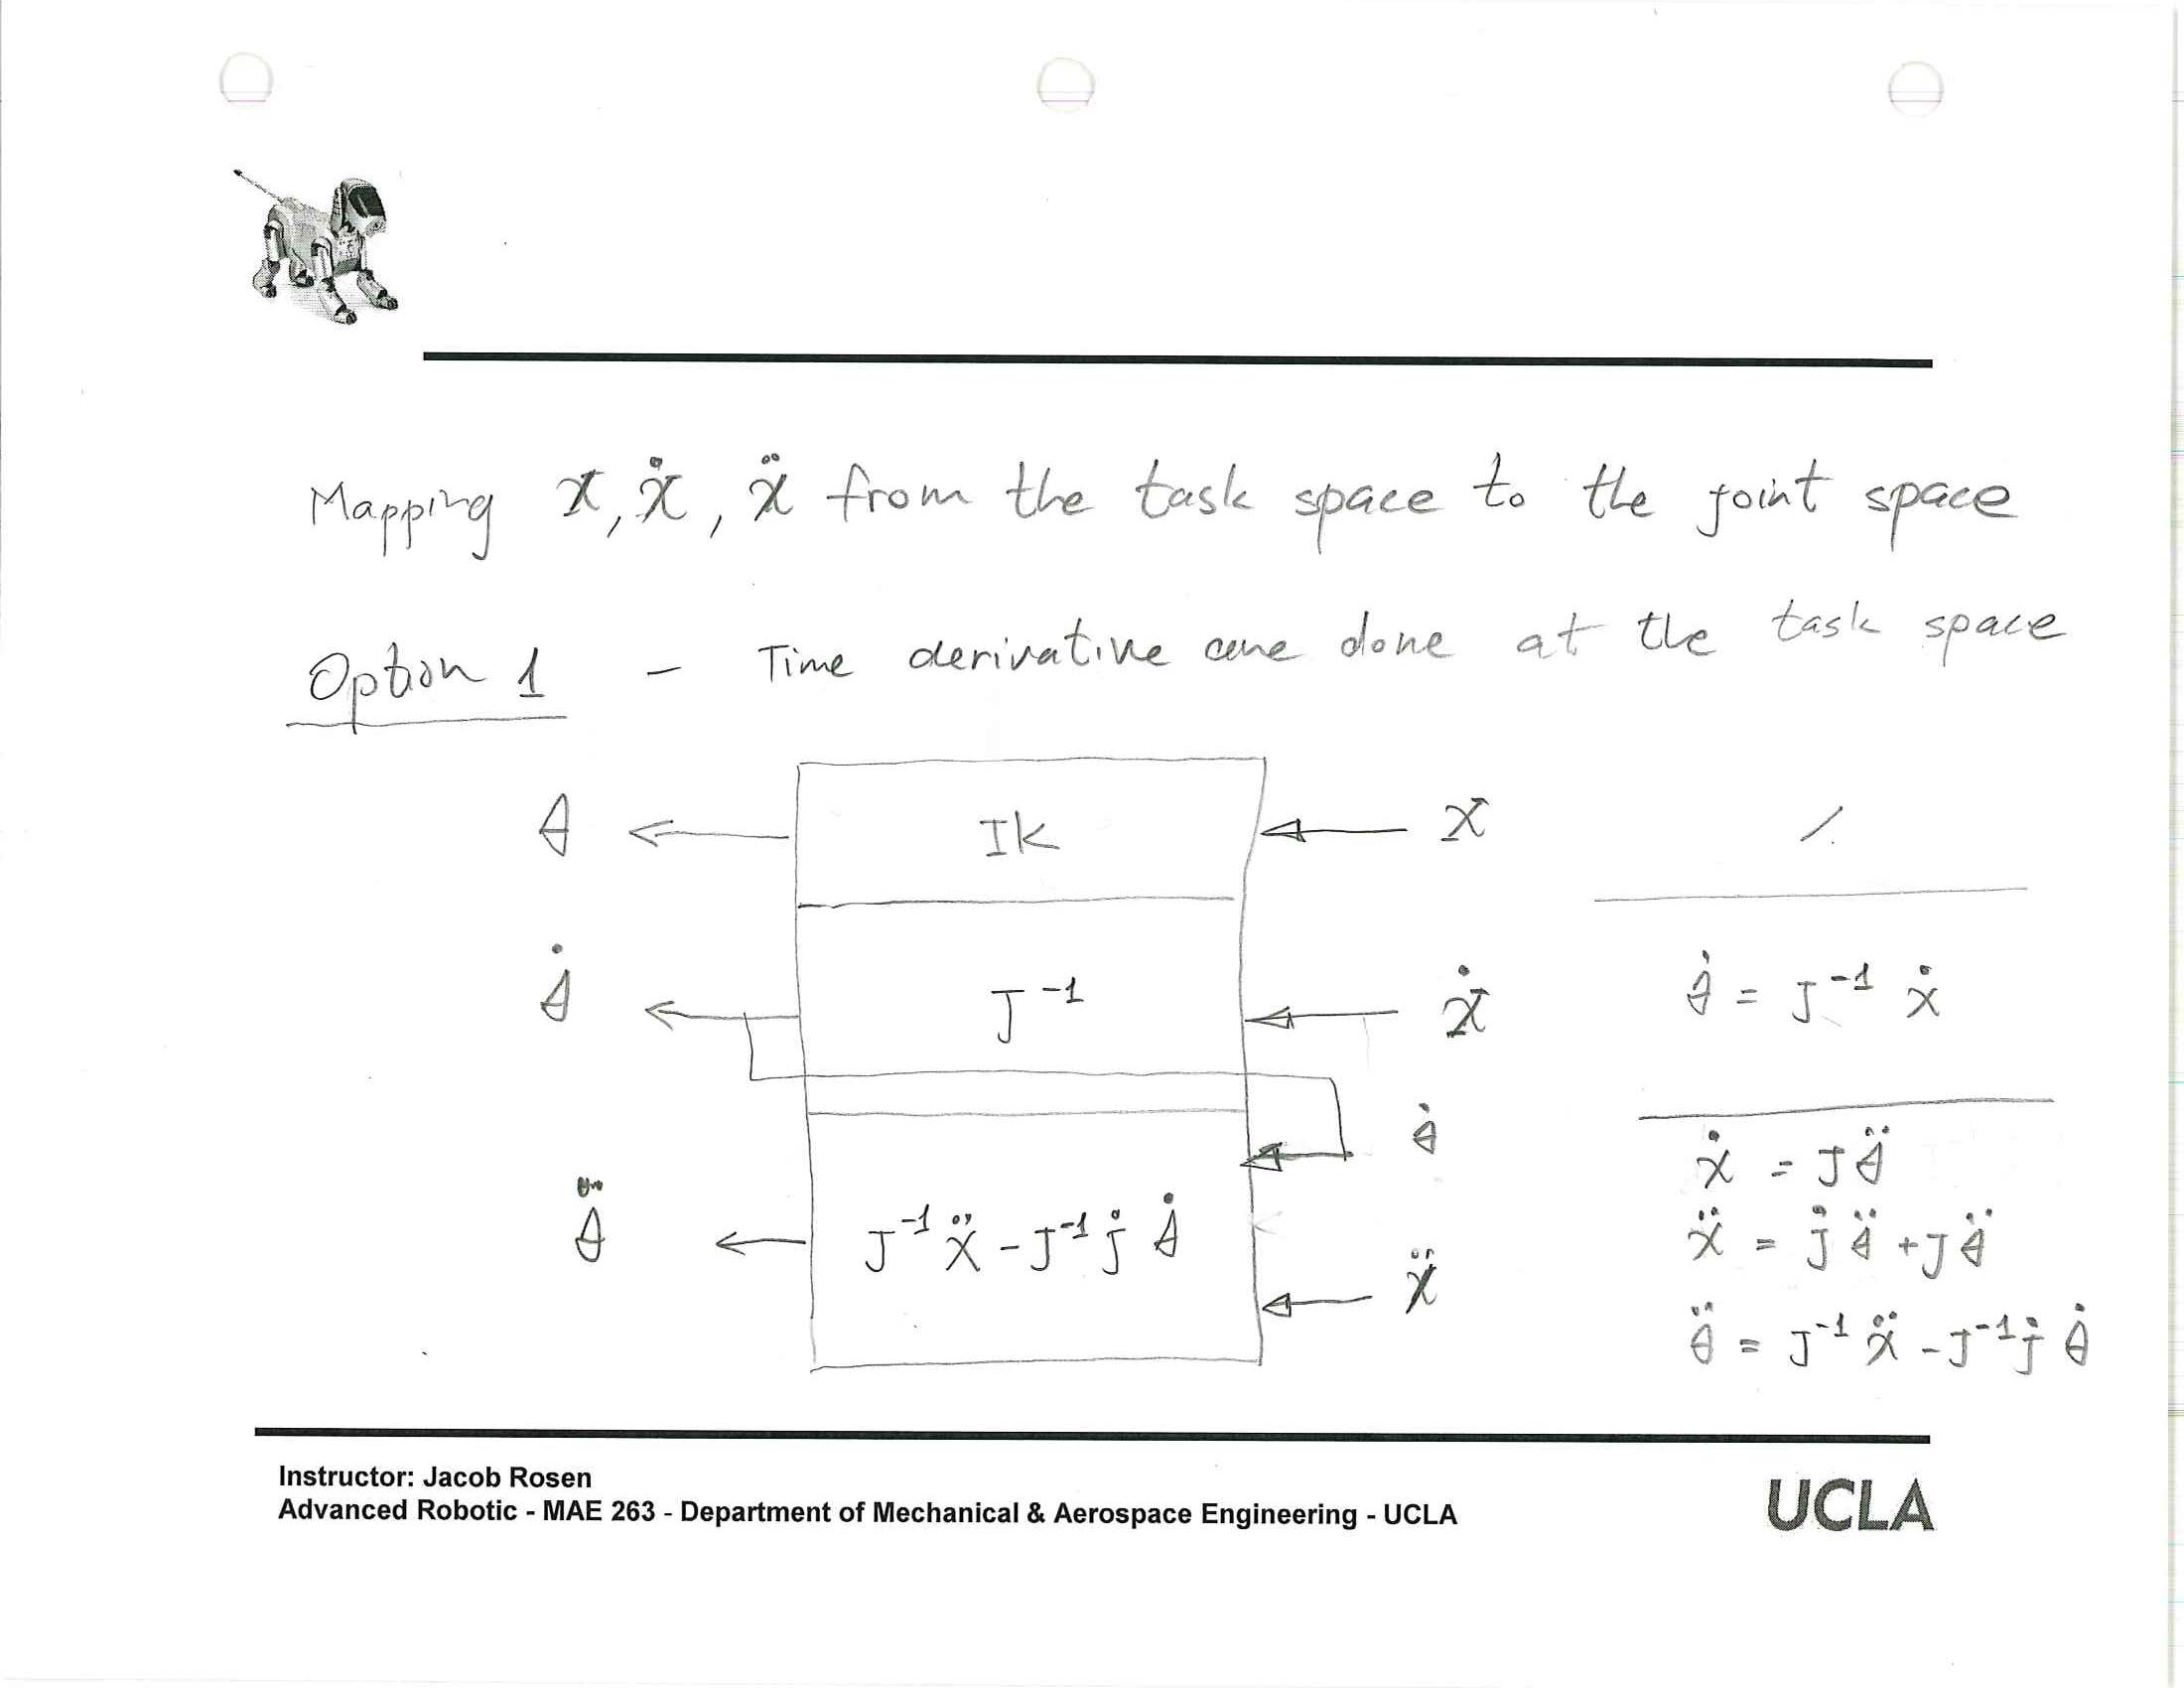 Mapping x, ẋ, ẍ from the task space to the joint space
Option 1 - Time derivative are done at the task space
θ ← IK ← x /.
θ̇ ← J⁻¹ ← ẋ θ̇ = J⁻¹ ẋ
θ̇
ẋ = J θ̈
θ̈ ← J⁻¹ ẍ - J⁻¹ J̇ θ̇ ← ẍ
ẍ = J̇ θ̈ + J θ̈
θ̈ = J⁻¹ ẍ - J⁻¹ J̇ θ̇
Instructor: Jacob Rosen
Advanced Robotic - MAE 263 - Department of Mechanical & Aerospace Engineering - UCLA
UCLA